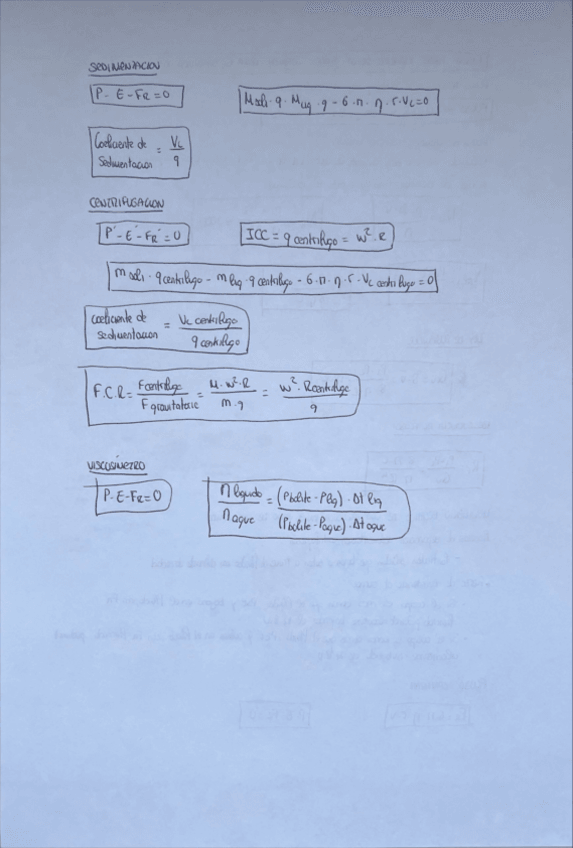 SEDIMENTACION
P - E - FR = 0
Msoli · g · Mliq · g - 6 · π · η · r · VL = 0
Coeficiente de Sedimentacion = VL / g
CENTRIFUGACION
P' - E' - FR' = 0
ICC = g centrifugo = W² · R
m soli · g centrifugo - m liq · g centrifugo - 6 · π · η · r · VL centrifugo = 0
coeficiente de Sedimentacion = VL centrifugo / g centrifugo
F.C.R = F centrifugo / F gravitatorie = M · W² · R / m · g = W² · R centrifugo / g
VISCOSIMETRO
P - E - FR = 0
η liquido / η agua = (ρbolita - ρliq) · Δt liq / (ρbolita - ρagua) · Δt agua